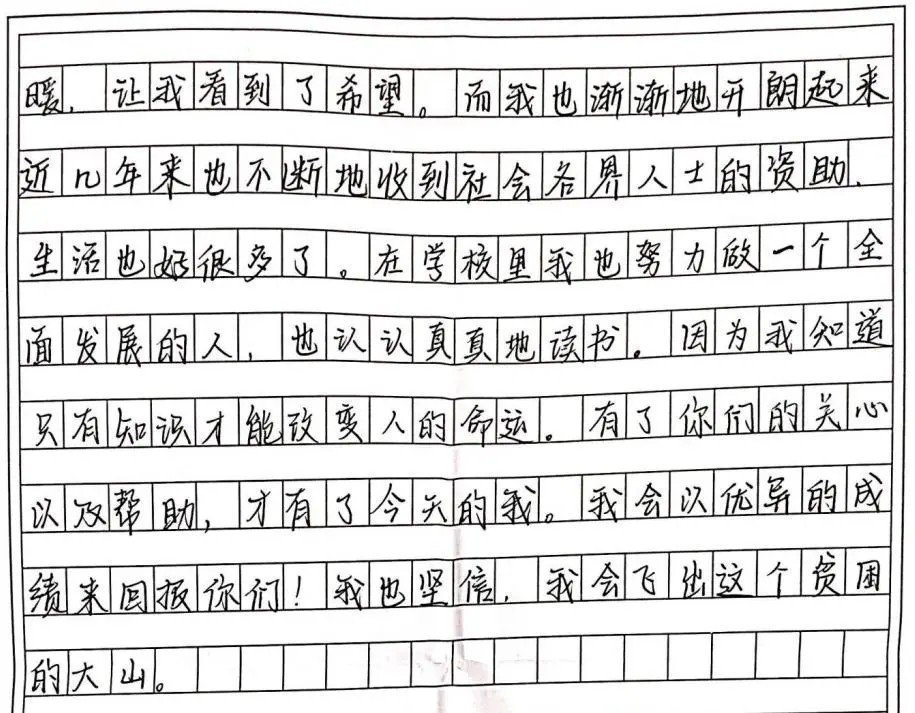 暖，让我看到了希望。而我也渐渐地开朗起来
近几年来也不断地收到社会各界人士的资助，
生活也好很多了。在学校里我也努力做一个全
面发展的人，也认认真真地读书。因为我知道
只有知识才能改变人的命运。有了你们的关心
以及帮助，才有了今天的我。我会以优异的成
绩来回报你们！我也坚信，我会飞出这个贫困
的大山。